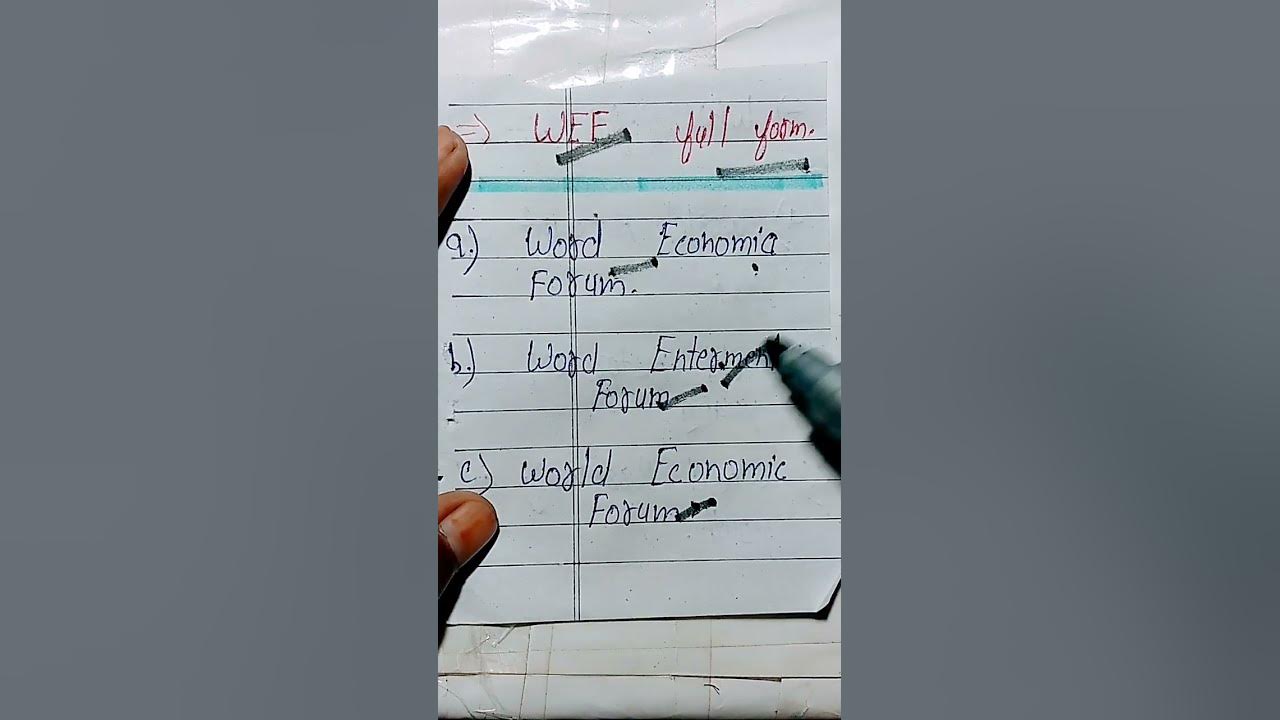 => WEF full form.
a.) Word Economic
Forum.
b.) Word
Forum
c) World Economic
Forum